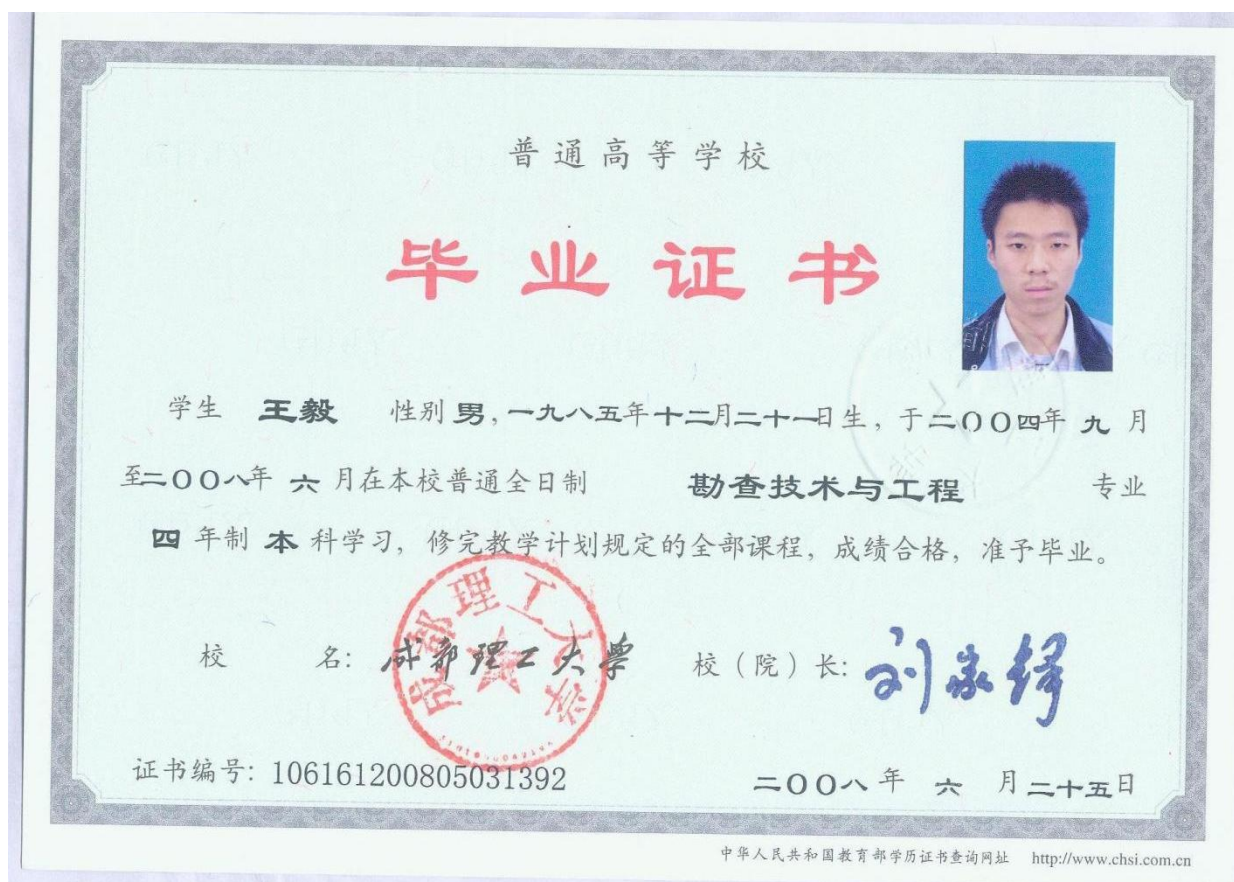 普通高等学校
毕业证书
学生 王毅 性别 男, 一九八五年十二月二十一日生, 于二〇〇四年 九 月
至二〇〇八年 六 月在本校普通全日制 勘查技术与工程 专业
四 年制 本 科学习, 修完教学计划规定的全部课程, 成绩合格, 准予毕业。
校 名: 成都理工大学 校（院）长: 刘家铎
成都理工大学
证书编号: 106161200805031392 二〇〇八 年 六 月 二十五日
中华人民共和国教育部学历证书查询网址 http://www.chsi.com.cn